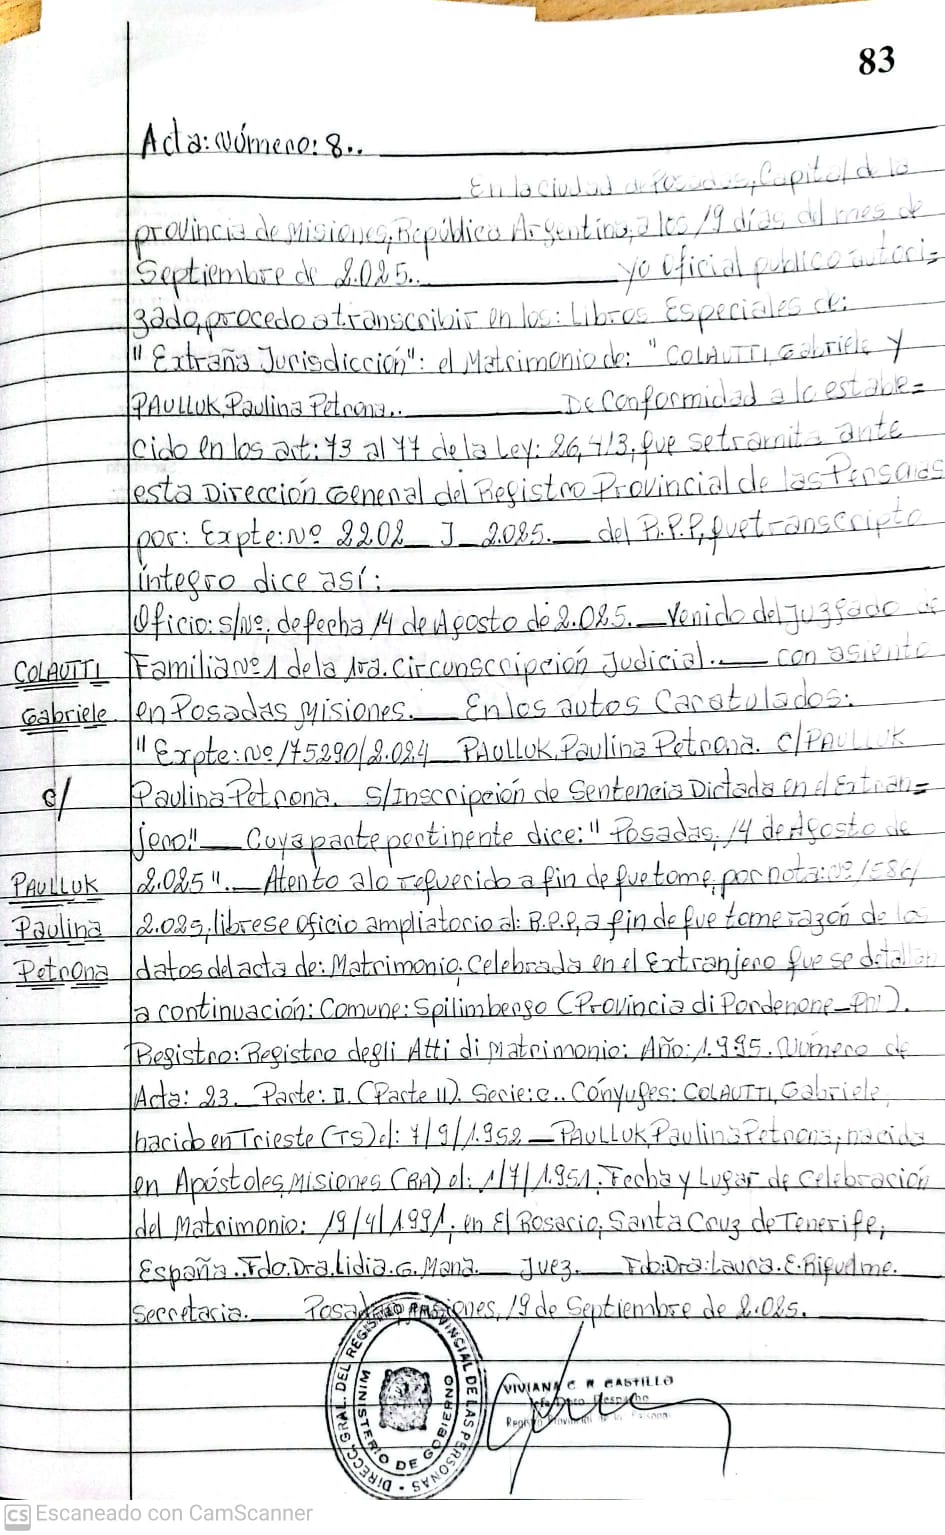 83
Acta: Número: 8..
En la ciudad de Posadas, Capital de la
provincia de Misiones, República Argentina, a los 19 días del mes de
Septiembre de 2.025.. yo Oficial publico autori=
zado, procedo a transcribir en los: Libros Especiales de:
"Extraña Jurisdicción": el Matrimonio de: "COLAUTTI, Gabriele y
PAULLUK, Paulina Petrona.. De Conformidad a lo estable=
cido en los art: 73 al 77 de la Ley: 26,413, que se tramita ante
esta Dirección General del Registro Provincial de las Personas
por: Expte: Nº 2202 J 2.025. del R.P.P, que transcripto
integro dice así:
Oficio: s/Nº, de fecha 14 de Agosto de 2.025. Venido del Juzgado de
Familia Nº 1 de la 1ra. Circunscripción Judicial. con asiento
en Posadas Misiones. En los autos Caratulados:
"Expte: Nº 175290/2.024 PAULLUK, Paulina Petrona. C/ PAULLUK
Paulina Petrona. S/Inscripción de Sentencia Dictada en el Extran=
jero" Cuya parte pertinente dice: "Posadas, 14 de Agosto de
2.025". Atento a lo requerido a fin de que tome, por nota: nº 1586/
2.025, librese oficio ampliatorio al: R.P.P, a fin de que tome razón de los
datos del acta de: Matrimonio. Celebrada en el Extranjero que se detallan
a continuación: Comune: Spilimbergo (Provincia di Pordenone_PN).
Registro: Registro degli Atti di Matrimonio: Año: 1.995. Número de
Acta: 23. Parte: II. (Parte 11). Serie: C.. Cónyuges: COLAUTTI, Gabriele,
nacido en Trieste (TS) el: 7/9/1.952 _ PAULLUK Paulina Petrona, nacida
en Apóstoles, Misiones (RA) el: 1/7/1.951. Fecha y Lugar de Celebración
del Matrimonio: 19/4/1.991. en El Rosario, Santa Cruz de Tenerife,
España. Fdo. Dra. Lidia. G. Mana. Juez. Fdo: Dra: Laura. E. Riquelme.
Secretaria. Posadas Misiones, 19 de Septiembre de 2.025.
COLAUTTI
Gabriele
c/
PAULLUK
Paulina
Petrona
DIRECC. GRAL. DEL REGISTRO PROVINCIAL DE LAS PERSONAS
MINISTERIO DE GOBIERNO
VIVIANA C R CASTILLO
Jefe Dpto Despacho
Registro Provincial de las Personas
CS Escaneado con CamScanner